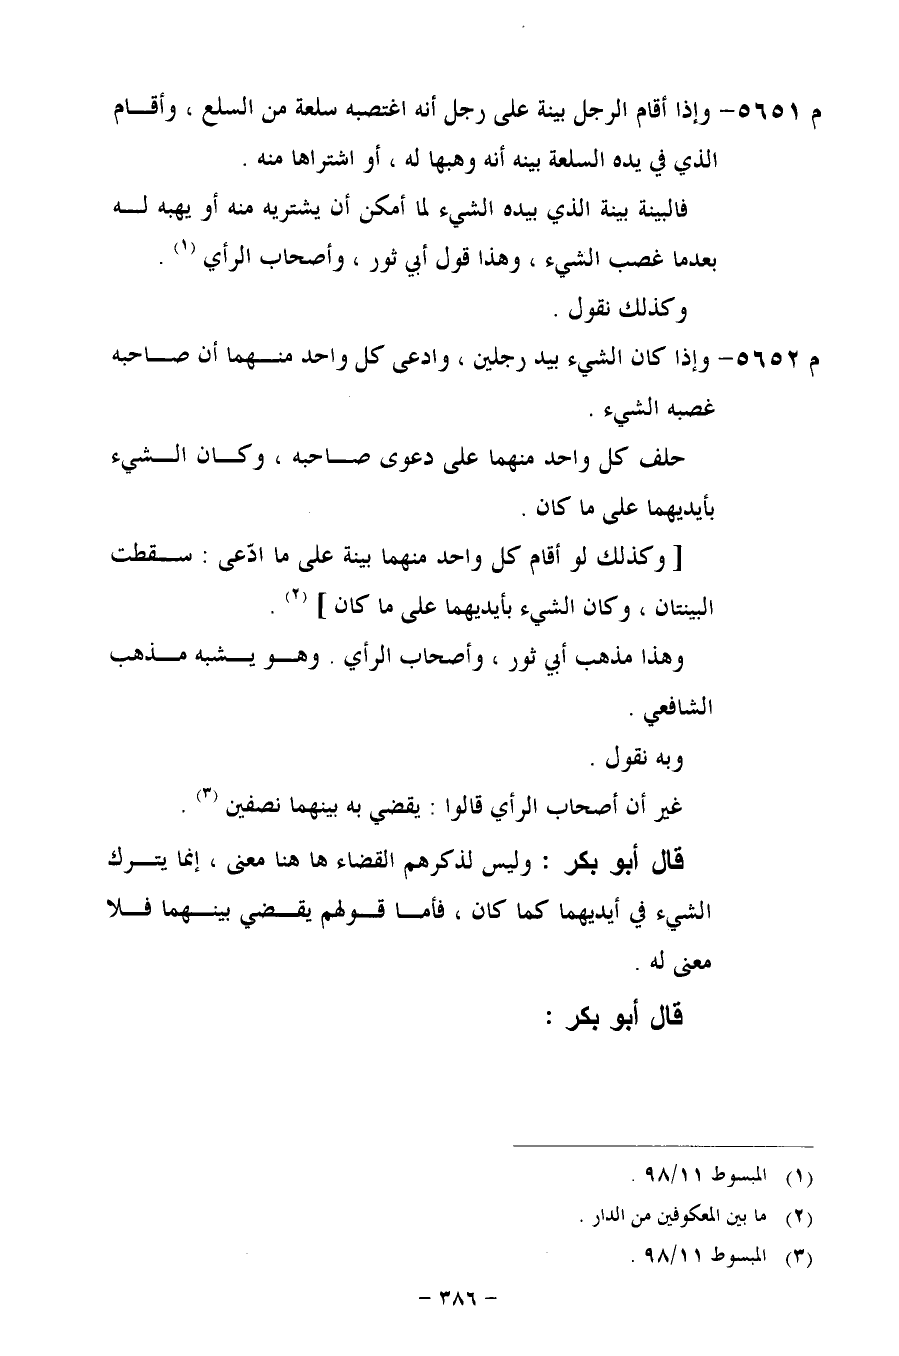 م ٥٦٥١- وإذا أقام الرجل بينة على رجل أنه اغتصبه سلعة من السلع ، وأقـــام
الذي في يده السلعة بينه أنه وهبها له ، أو اشتراها منه .
فالبينة بينة الذي بيده الشيء لما أمكن أن يشتريه منه أو يهبه لـــه
بعدما غصب الشيء ، وهذا قول أبي ثور ، وأصحاب الرأي (١) .
وكذلك نقول .
م ٥٦٥٢- وإذا كان الشيء بيد رجلين ، وادعى كل واحد منـــهما أن صـــاحبه
غصبه الشيء .
حلف كل واحد منهما على دعوى صـــاحبه ، وكـــان الـــشيء
بأيديهما على ما كان .
[ وكذلك لو أقام كل واحد منهما بينة على ما ادّعى : ســـقطت
البينتان ، وكان الشيء بأيديهما على ما كان ] (٢) .
وهذا مذهب أبي ثور ، وأصحاب الرأي . وهـــو يـــشبه مـــذهب
الشافعي .
وبه نقول .
غير أن أصحاب الرأي قالوا : يقضي به بينهما نصفين (٣) .
قال أبو بكر : وليس لذكرهم القضاء ها هنا معنى ، إنما يتـــرك
الشيء في أيديهما كما كان ، فأمـــا قـــولهم يقـــضي بينـــهما فـــلا
معنى له .
قال أبو بكر :
(١) المبسوط ٩٨/١١ .
(٢) ما بين المعكوفين من الدار .
(٣) المبسوط ٩٨/١١ .
- ٣٨٦ -